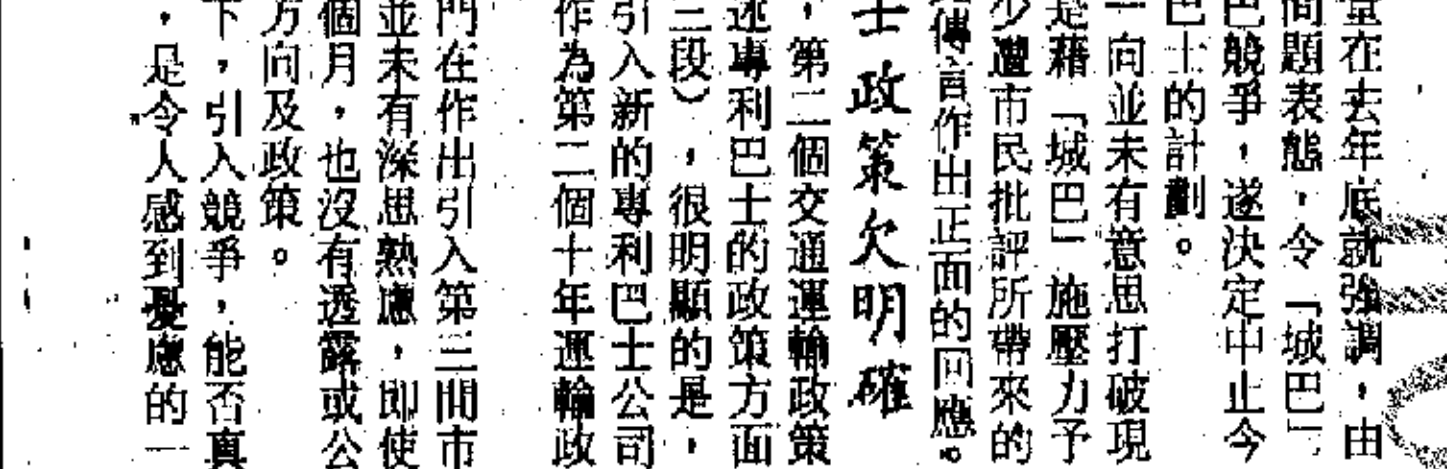 堂在去年底就強調，由
問題表態，令「城巴」
巴競爭，遂決定中止今
巴士的計劃。
一向並未有意思打破現
是藉「城巴」施壓力予
少遭市民批評所帶來的
傳言作出正面的回應。
士政策欠明確
，第二個交通運輸政策
述專利巴士的政策方面
三段），很明顯的是，
引入新的專利巴士公司
作為第二個十年運輸政
門在作出引入第三間市
並未有深思熟慮，即使
個月，也沒有透露或公
方向及政策。
下，引入競爭，能否真
，是令人感到憂慮的一